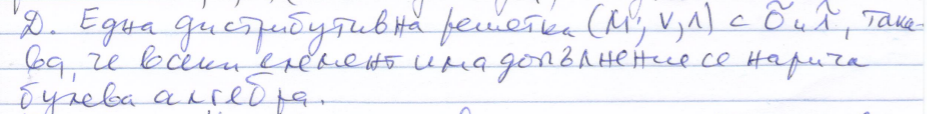 D. Една дистрибутивна решетка (M; ∨, ∧) с õ и ĩ, така-
ва, че всеки елемент има допълнение се нарича
булева алгебра.